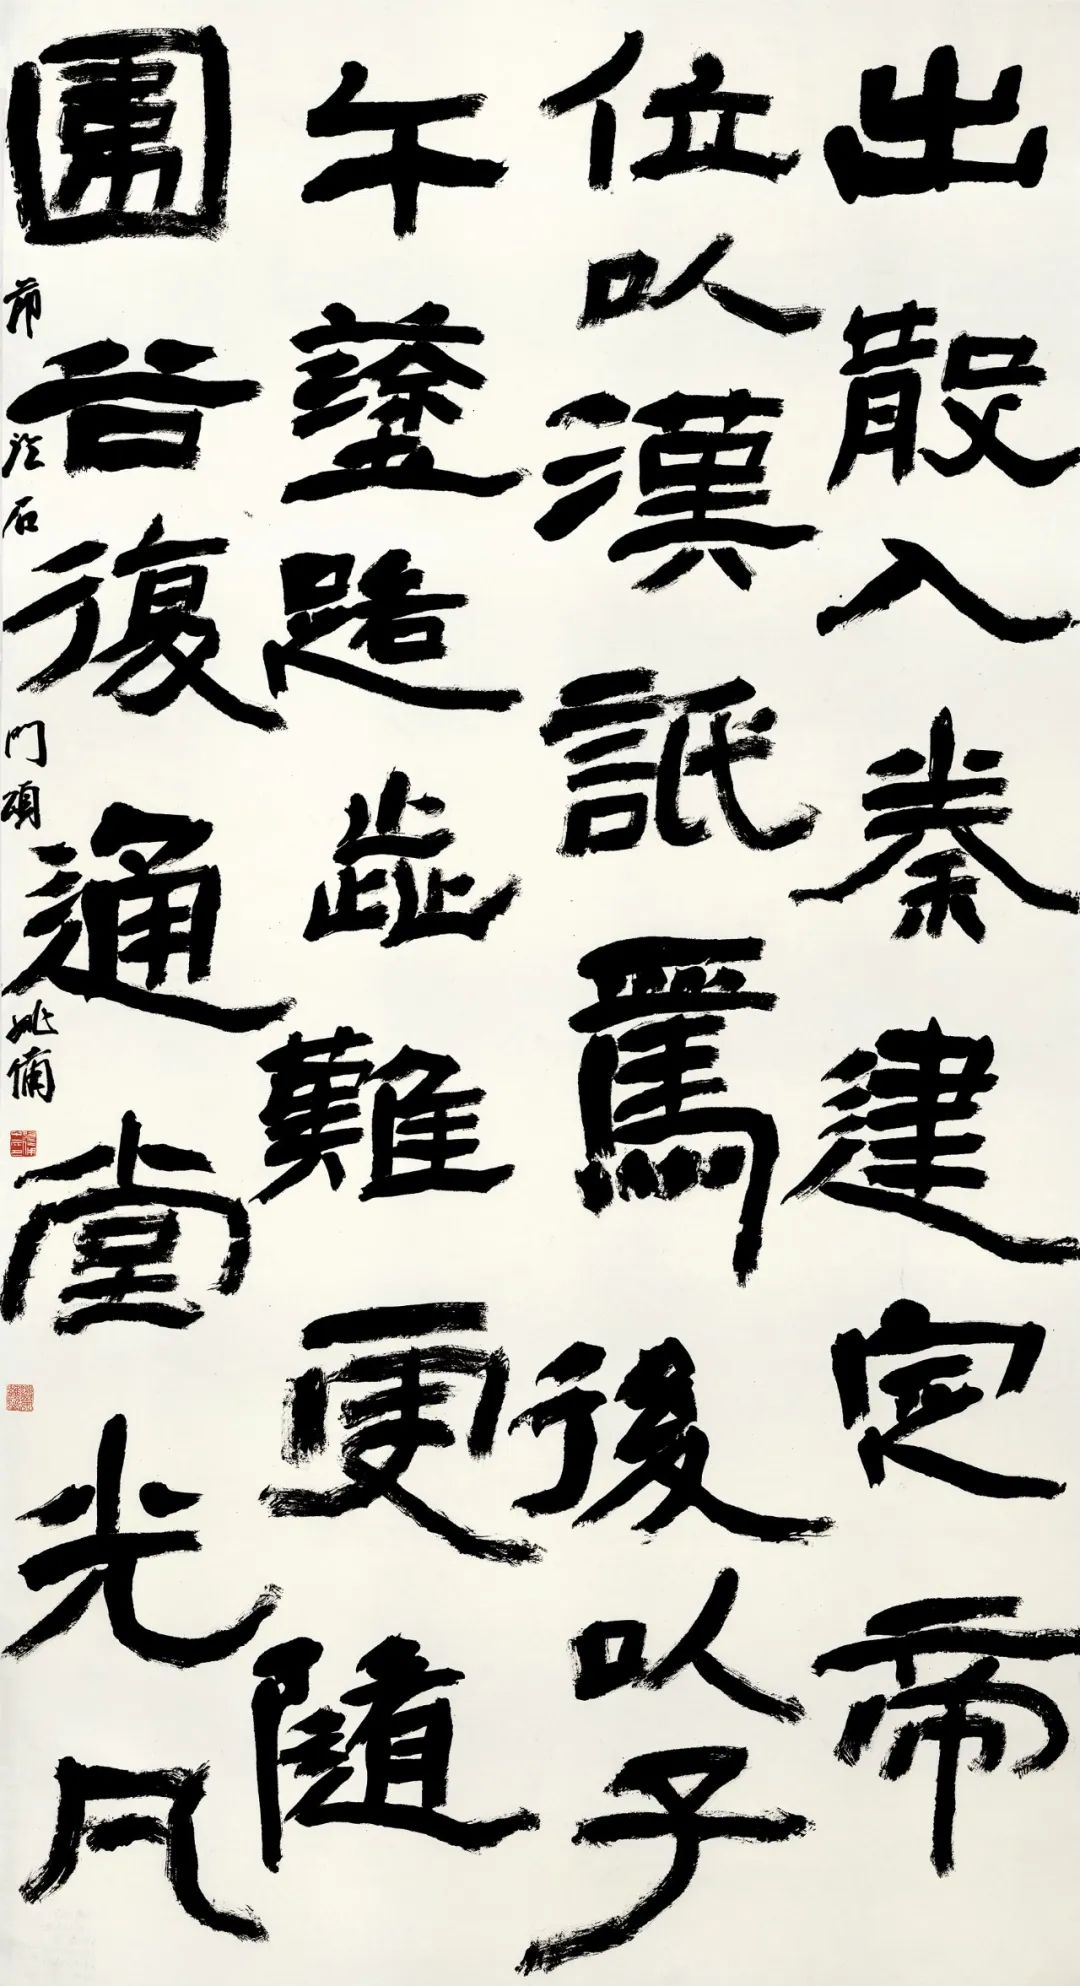 出散入秦建定帝
位以漢詆焉後以子
午塗路歰難更隨
圍谷復通堂光凡
節臨石門頌 姚